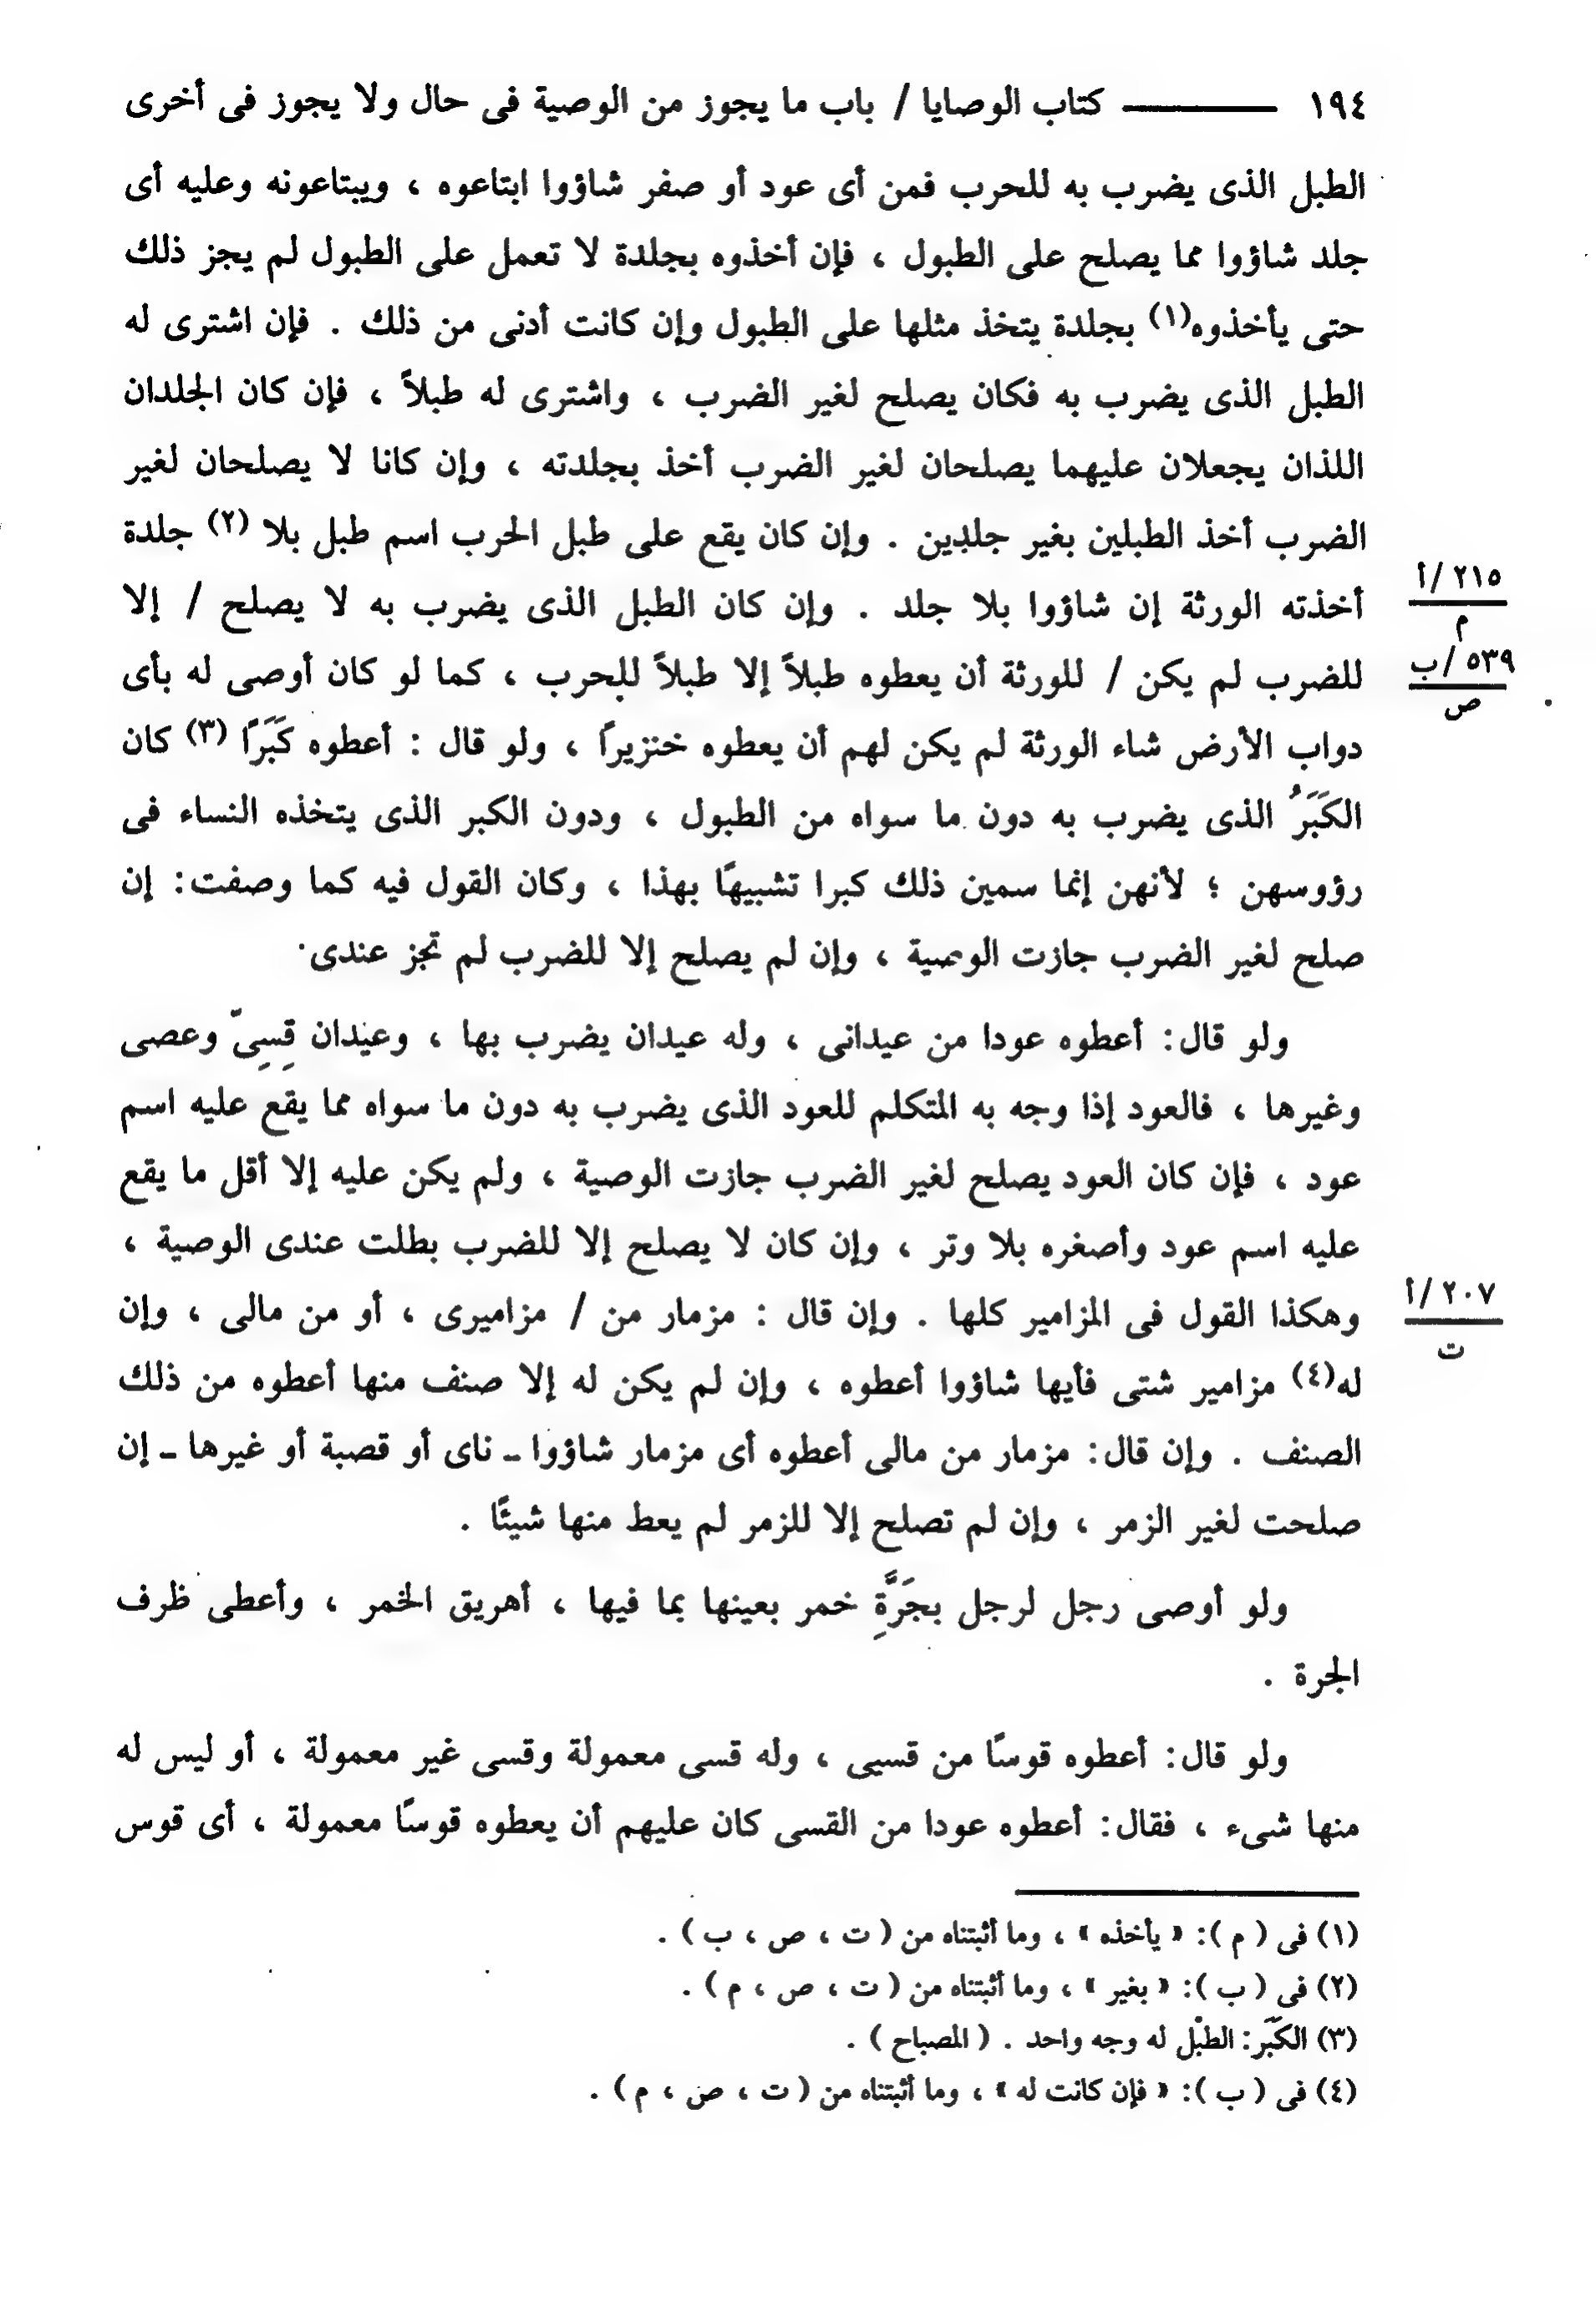 ١٩٤ ——— كتاب الوصايا / باب ما يجوز من الوصية فى حال ولا يجوز فى أخرى
الطبل الذى يضرب به للحرب فمن أى عود أو صفر شاؤوا ابتاعوه ، ويبتاعونه وعليه أى
جلد شاؤوا مما يصلح على الطبول ، فإن أخذوه بجلدة لا تعمل على الطبول لم يجز ذلك
حتى يأخذوه(١) بجلدة يتخذ مثلها على الطبول وإن كانت أدنى من ذلك . فإن اشترى له
الطبل الذى يضرب به فكان يصلح لغير الضرب ، واشترى له طبلاً ، فإن كان الجلدان
اللذان يجعلان عليهما يصلحان لغير الضرب أخذ بجلدته ، وإن كانا لا يصلحان لغير
الضرب أخذ الطبلين بغير جلدين . وإن كان يقع على طبل الحرب اسم طبل بلا (٢) جلدة
أخذته الورثة إن شاؤوا بلا جلد . وإن كان الطبل الذى يضرب به لا يصلح / إلا
٢١٥/أ
م
للضرب لم يكن / للورثة أن يعطوه طبلاً إلا طبلاً للحرب ، كما لو كان أوصى له بأى
٥٣٩/ب
ص
دواب الأرض شاء الورثة لم يكن لهم أن يعطوه خنزيرًا ، ولو قال : أعطوه كَبَرًا (٣) كان
الكَبَرُ الذى يضرب به دون ما سواه من الطبول ، ودون الكبر الذى يتخذه النساء فى
رؤوسهن ؛ لأنهن إنما سمين ذلك كبرا تشبيهًا بهذا ، وكان القول فيه كما وصفت: إن
صلح لغير الضرب جازت الوصية ، وإن لم يصلح إلا للضرب لم تجز عندى.
ولو قال: أعطوه عودا من عيدانى ، وله عيدان يضرب بها ، وعيدان قِسِىّ وعصى
وغيرها ، فالعود إذا وجه به المتكلم للعود الذى يضرب به دون ما سواه مما يقع عليه اسم
عود ، فإن كان العود يصلح لغير الضرب جازت الوصية ، ولم يكن عليه إلا أقل ما يقع
عليه اسم عود وأصغره بلا وتر ، وإن كان لا يصلح إلا للضرب بطلت عندى الوصية ،
وهكذا القول فى المزامير كلها . وإن قال : مزمار من / مزاميرى ، أو من مالى ، وإن
٢٠٧/أ
ت
له(٤) مزامير شتى فأيها شاؤوا أعطوه ، وإن لم يكن له إلا صنف منها أعطوه من ذلك
الصنف . وإن قال: مزمار من مالى أعطوه أى مزمار شاؤوا ـ ناى أو قصبة أو غيرها ـ إن
صلحت لغير الزمر ، وإن لم تصلح إلا للزمر لم يعط منها شيئًا .
ولو أوصى رجل لرجل بجَرَّةِ خمر بعينها بما فيها ، أهريق الخمر ، وأعطى ظرف
الجرة .
ولو قال: أعطوه قوسًا من قسيى ، وله قسى معمولة وقسى غير معمولة ، أو ليس له
منها شىء ، فقال: أعطوه عودا من القسى كان عليهم أن يعطوه قوسًا معمولة ، أى قوس
(١) فى ( م ): « يأخذه » ، وما أثبتناه من ( ت ، ص ، ب ) .
(٢) فى ( ب ): « بغير » ، وما أثبتناه من ( ت ، ص ، م ) .
(٣) الكَبَر: الطبْل له وجه واحد . ( المصباح ) .
(٤) فى ( ب ): « فإن كانت له » ، وما أثبتناه من ( ت ، ص ، م ) .